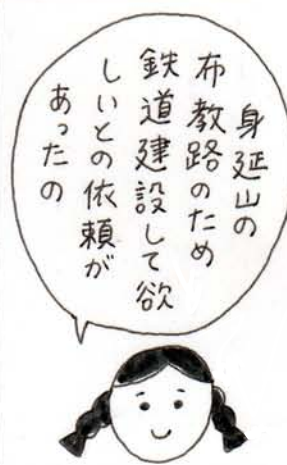 身延山の
布教路のため
鉄道建設して欲
しいとの依頼が
あったの